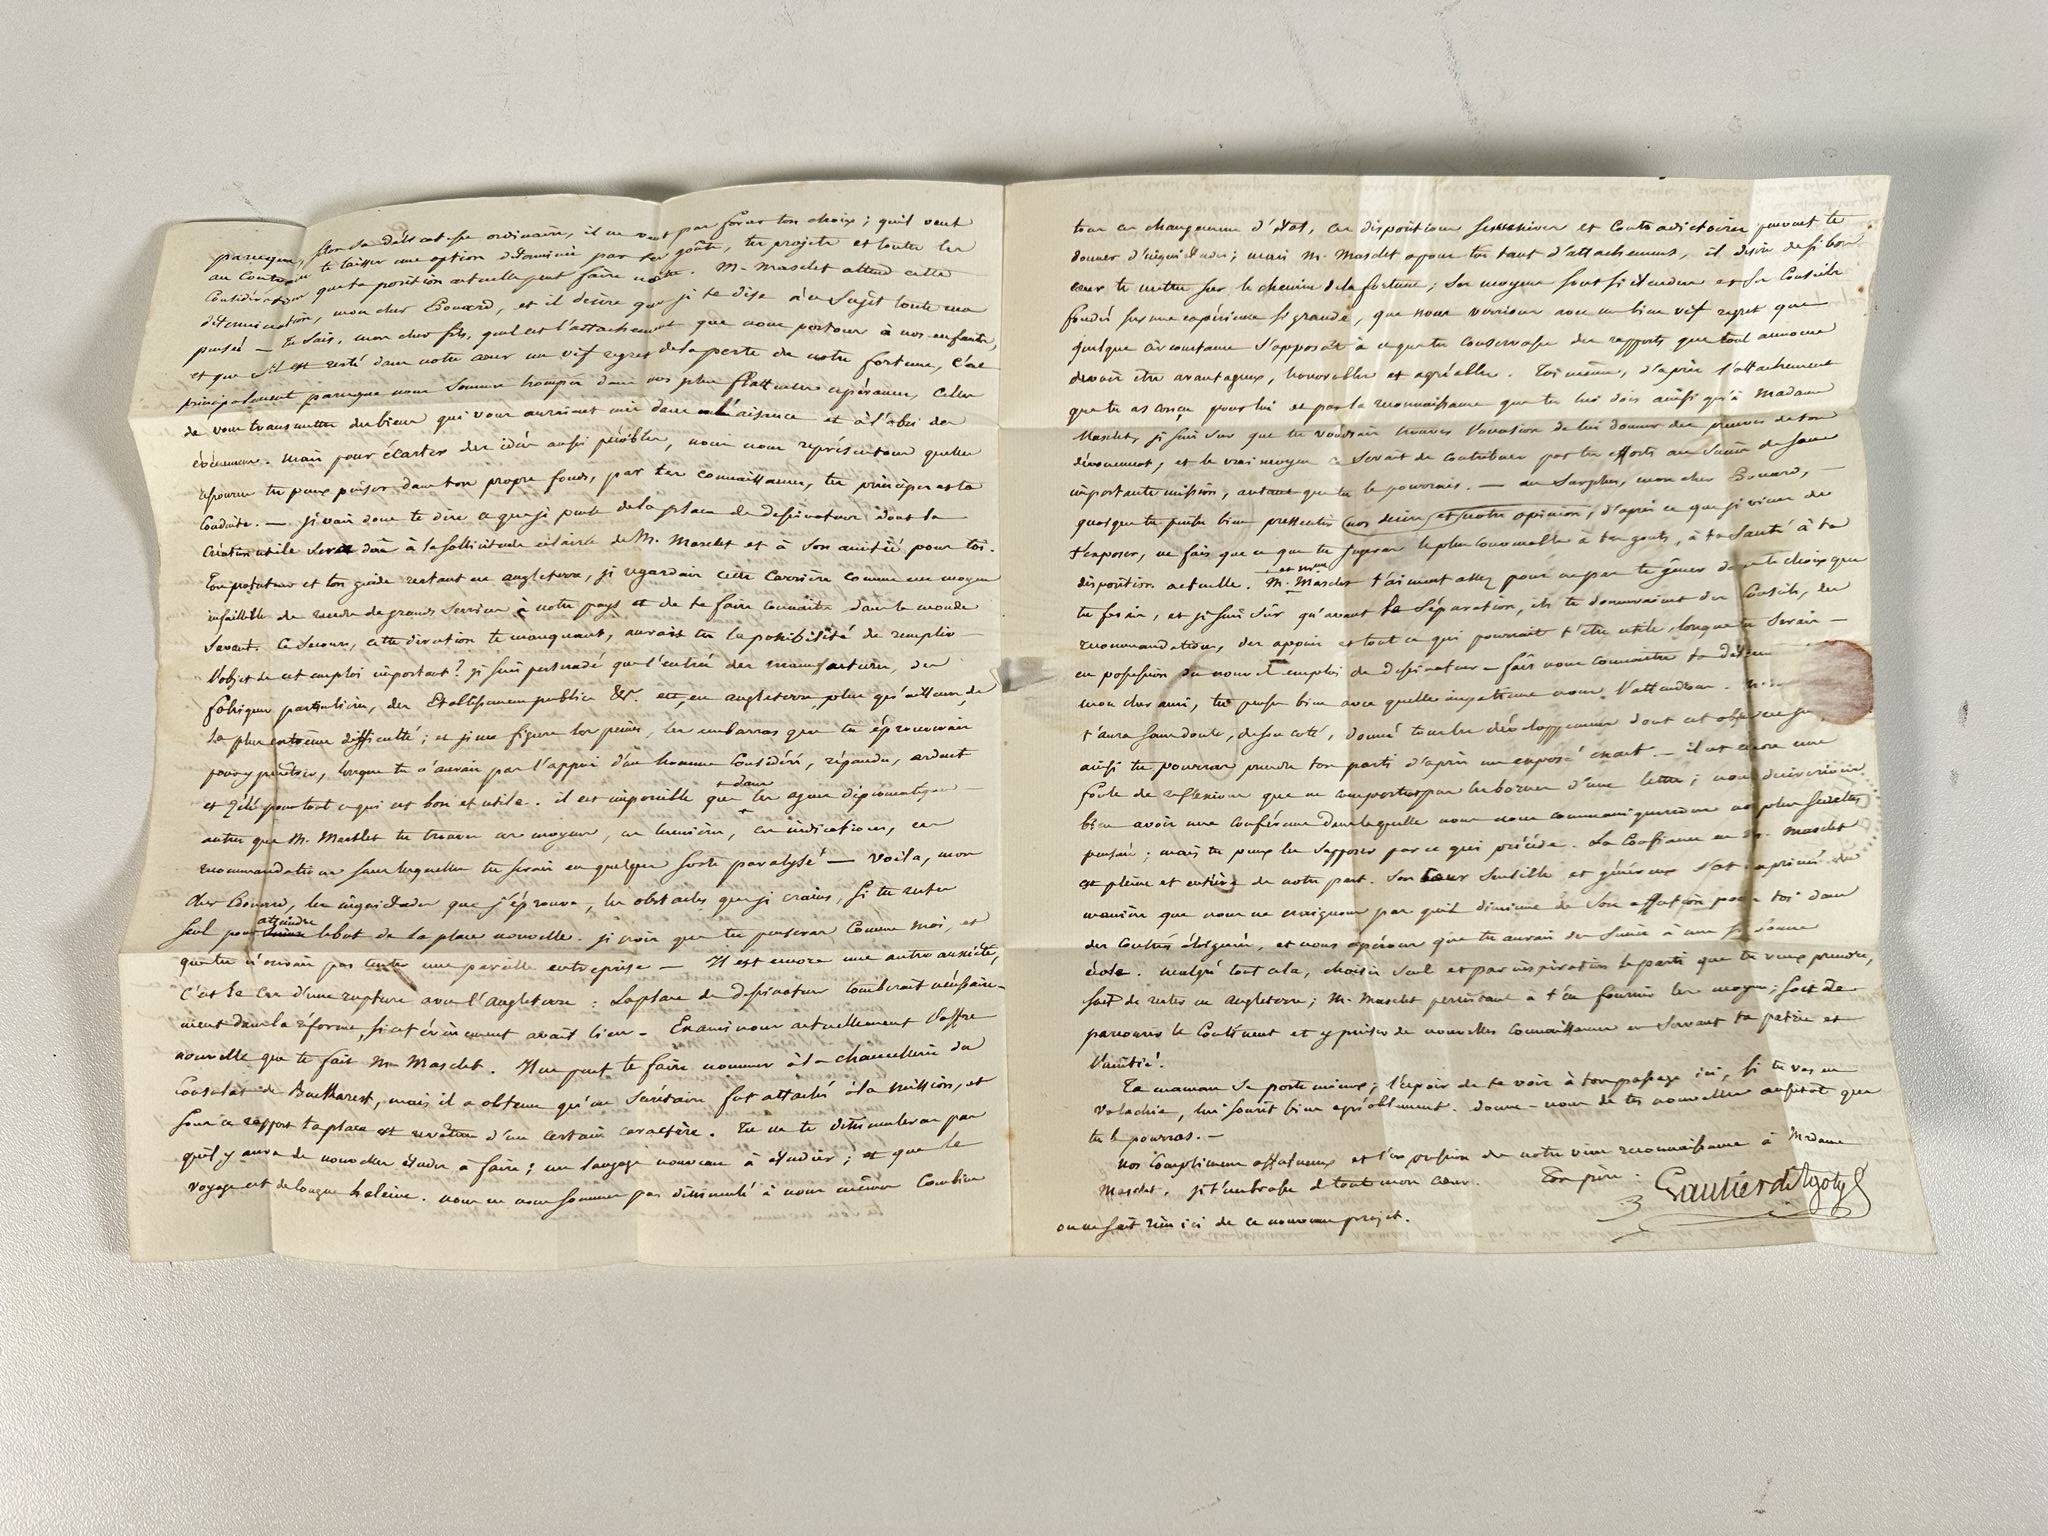 parceque, selon sa délicatesse ordinaire, il ne veut pas forcer ton choix; qu'il veut
au contraire te laisser une option déterminée par tes goûts, tes projets et toutes les
considérations que ta position actuelle peut faire naître. M. Masclet attend cette
détermination, mon cher Edouard, et il désire que je te dise à ce sujet toute ma
pensée — Tu sais, mon cher fils, quel est l'attachement que nous portons à nos enfants,
et que s'il est resté dans notre cœur un vif regret de la perte de notre fortune, c'est
principalement parceque nous sommes trompés dans nos plus flatteuses espérances, celles
de vous transmettre des biens qui vous auraient mis dans l'aisance et à l'abri des
évènemens. Mais pour écarter des idées aussi pénibles, nous nous représentons quelles
ressources tu peux puiser dans ton propre fonds, par tes connaissances, tes principes et ta
conduite. — je vais donc te dire ce que je pense de la place de dessinateur dont la
création utile sera due à la sollicitude éclairée de M. Masclet et à son amitié pour toi.
Ton protecteur et ton guide restant en angleterre, je regardais cette carrière comme un moyen
infaillible de rendre de grands services à notre pays et de te faire connaître dans le monde
savant. Ce secours, cette direction te manquant, aurais tu la possibilité de remplir
l'objet de cet emploi important? je suis persuadé que l'entrée des manufactures, des
fabriques particulières, des Etablissemens publics &c. est, en angleterre plus qu'ailleurs, de
la plus extrême difficulté; et je me figure les peines, les embarras que tu éprouverais
pour y pénétrer, lorsque tu n'aurais pas l'appui d'un homme considéré, répandu, ardent
et zélé pour tout ce qui est bon et utile. il est impossible que dans les agens diplomatiques
autres que M. Masclet tu trouves ces moyens, ces lumières, ces indications, ces
recommandations sans lesquelles tu serais en quelque sorte paralysé — Voila, mon
cher Edouard, les inquiétudes que j'éprouve, les obstacles que je crains, si tu restes
seul pour atteindre le but de la place nouvelle. je crois que tu penseras comme moi, et
que tu n'oserais pas tenter une pareille entreprise — Il est encore une autre anxiété,
c'est le cas d'une rupture avec l'Angleterre: La place de dessinateur tomberait nécessaire-
ment dans la réforme, si cet évènement avait lieu. — Examinons actuellement l'offre
nouvelle que te fait M. Masclet. Il ne peut te faire nommer à la chancellerie du
Consulat de Bucharest, mais il a obtenu qu'un secrétaire fut attaché à la mission, et
sous ce rapport ta place est revêtue d'un certain caractère. Tu ne te dissimuleras pas
qu'il y aura de nouvelles études à faire; un langage nouveau à étudier; et que le
voyage est de longue haleine. nous ne nous sommes pas dissimulé à nous mêmes combien
tous ces changemens d'état, ces dispositions successives et contradictoires peuvent te
donner d'inquiétudes; mais M. Masclet a pour toi tant d'attachement, il désire de si bon
cœur te mettre sur le chemin de la fortune; ses moyens sont si étendus et ses conseils
fondés sur une expérience si grande, que nous verrions avec un bien vif regret que
quelque circonstance s'opposât à ce que tu conservasses des rapports que tout annonce
devoir être avantageux, honorables et agréables. Toi même, d'après l'attachement
que tu as conçu pour lui et par la reconnaissance que tu lui dois ainsi qu'à Madame
Masclet, je suis sûr que tu voudrais trouver l'occasion de lui donner des preuves de ton
dévouement, et le vrai moyen ce serait de contribuer par tes efforts au succès de sa
importante mission, autant que tu le pourrais. — au surplus, mon cher Edouard, —
quoique tu puisses bien pressentir nos désirs et notre opinion, d'après ce que je viens de
t'exposer, ne fais que ce que tu jugeras le plus convenable à tes goûts, à ta santé à ta
disposition actuelle. M. et Mme Masclet t'aiment assez pour ne pas te gêner dans le choix que
tu feras, et je suis sûr qu'avant la séparation, ils te donneraient des conseils, des
recommandations, des appuis et tout ce qui pourrait t'être utile, lorsque tu serais —
en possession du nouvel emploi de dessinateur — fais nous connaître ta décision
mon cher ami, tu penses bien avec quelle impatience nous l'attendons.
t'aura sans doute, de son coté, donné tous les développemens dont cet objet
ainsi tu pourras prendre ton parti d'après un exposé exact — il est encore une
foule de réflexions que ne comportent pas les bornes d'une lettre; nous désirerions
bien avoir une conférence dans laquelle nous nous communiquerions nos plus secrètes
pensées; mais tu peux les supposer par ce qui précède. La confiance en M. Masclet
est pleine et entière de notre part. Son cœur sensible et généreux s'est exprimé de
manière que nous ne craignons pas qu'il diminue de son affection pour toi dans
des contrées éloignées, et nous espérons que tu aurais du succès à une si bonne
école. malgré tout cela, choisis seul et par inspiration le parti que tu veux prendre,
soit de rester en Angleterre; M. Masclet persistant à t'en fournir les moyens; soit de
parcourir le Continent et y puiser de nouvelles connaissances en servant ta patrie et
l'amitié.
Ta maman se porte mieux; l'espoir de te voir à ton passage ici, si tu vas en
Valachie, lui sourit bien agréablement. donne-nous de tes nouvelles aussitot que
tu le pourras. —
Nos complimens affectueux et l'expression de notre vive reconnaissance à Madame
Masclet. je t'embrasse de tout mon cœur. Ton père:
Gautier d'Agoty
on ne sait rien ici de ce nouveau projet.